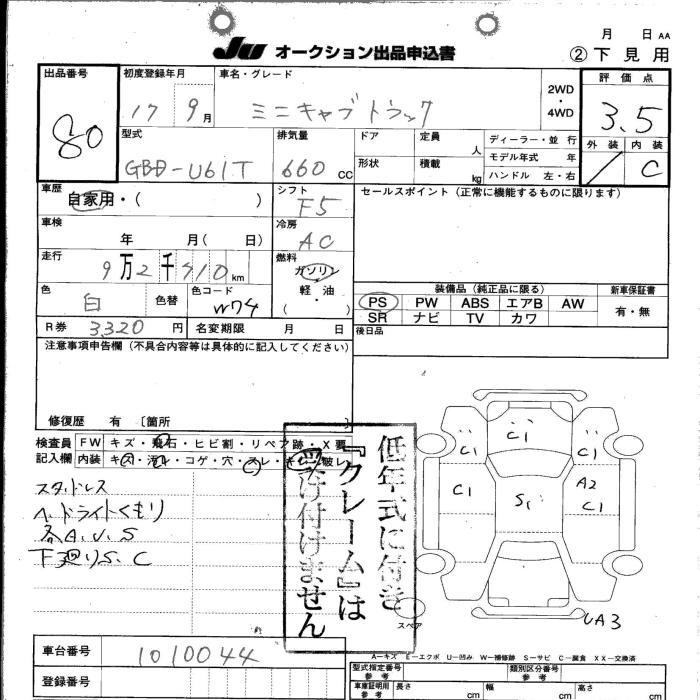 月 日 AA
JU オークション出品申込書 ②下見用
出品番号 初度登録年月 車名・グレード 評価点
80 17 9月 ミニキャブトラック 2WD・4WD 3.5
型式 排気量 ドア 定員 人 ディーラー・並行 外装 内装
GBD-U61T 660 CC 形状 積載 kg モデル年式 年 C
ハンドル 左・右
車歴 シフト セールスポイント (正常に機能するものに限ります)
自家用・( ) F5
車検 冷房
年 月( 日) AC
走行 燃料
9万2千910km ガソリン
軽・油
( )
色 色替 色コード 装備品 (純正品に限る) 新車保証書
白 W74 PS PW ABS エアB AW 有・無
SR ナビ TV カワ
R券 3320円 名変期限 月 日 後日品
注意事項申告欄 (不具合内容等は具体的に記入してください)
修復歴 有 〔箇所 〕
検査員記入欄 FW キズ・飛石・ヒビ割・リペア跡・X要
内装 キズ・汚レ・コゲ・穴・スレ・キレ・破レ
スタッドレス
A.
下廻りS.C
低年式に付き
『クレーム』は
受け付けません
C1 C1 C1
C1 S1 A2
C1
スペア UA3
A-キズ E-エクボ U-凹み W-補修跡 S-サビ C-腐食 XX-交換済
車台番号 1010044
登録番号
型式指定番号 参考 類別区分番号 参考
車庫証明用 参考 長さ cm 幅 cm 高さ cm